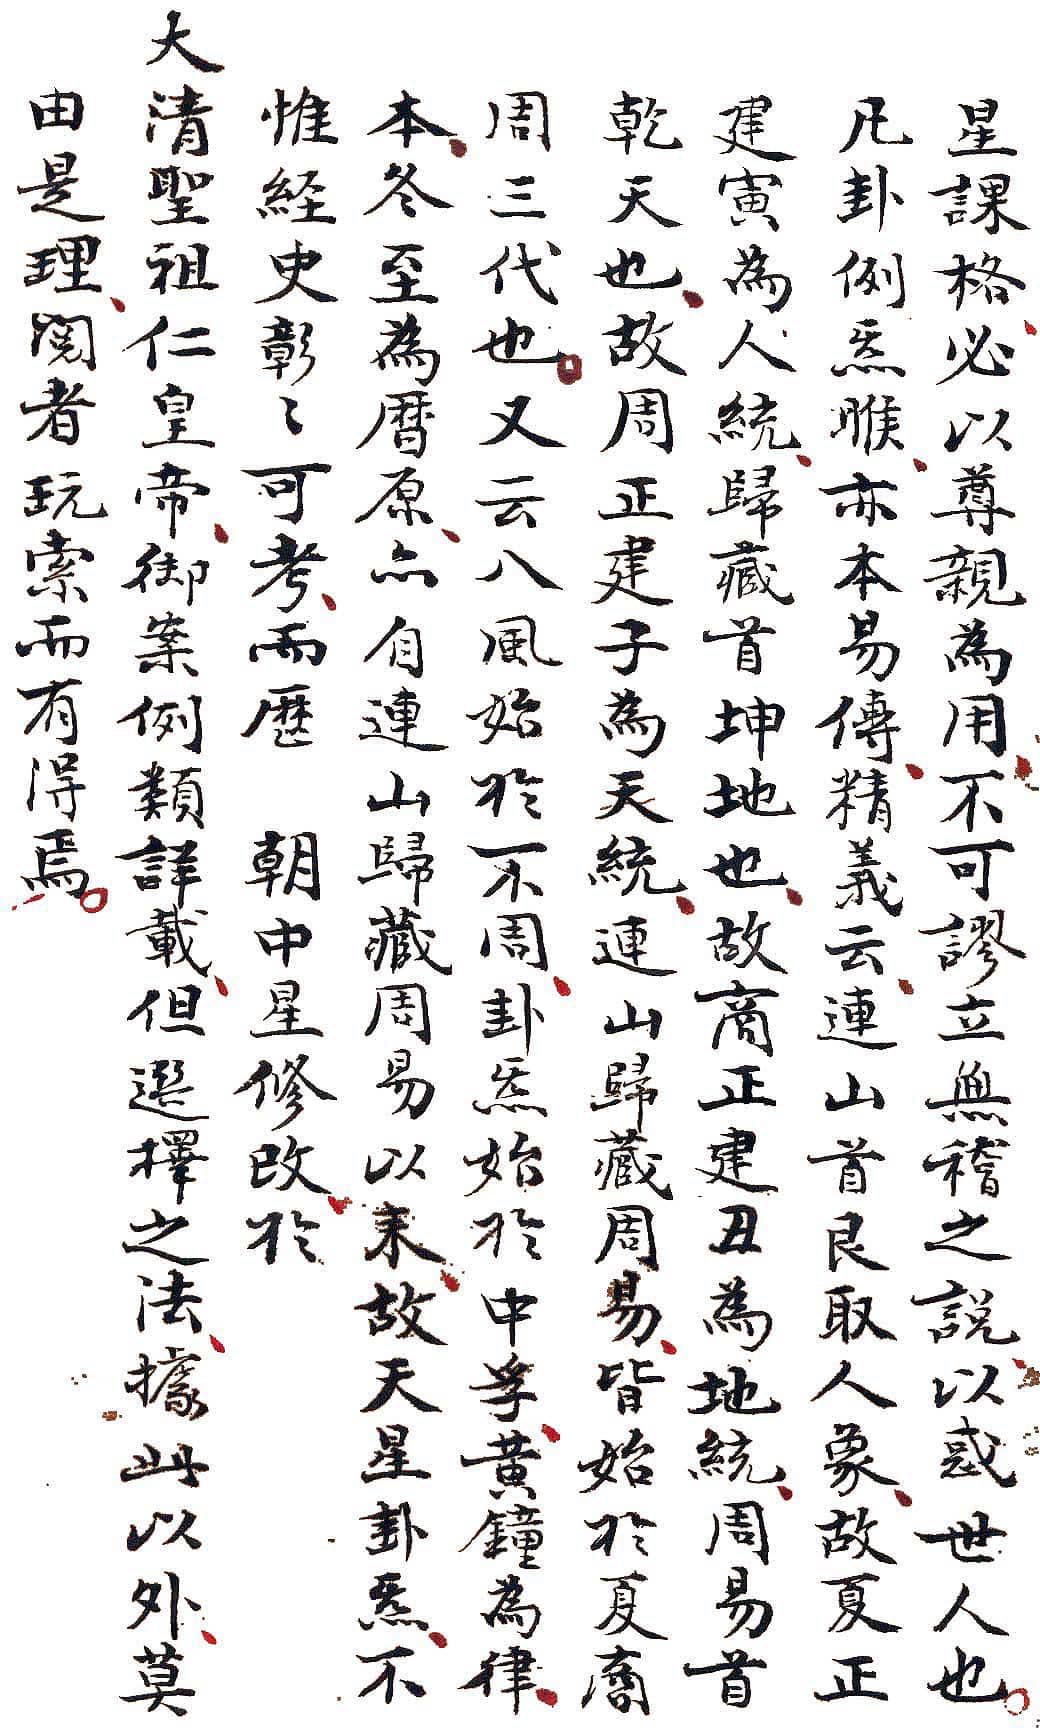 星課格必以尊親為用不可謬立無稽之説以惑世人也
凡卦例炁㬋亦本易傳精義云連山首艮取人象故夏正
建寅為人統歸藏首坤地也故商正建丑為地統周易首
乾天也故周正建子為天統連山歸藏周易皆始於夏商
周三代也又云八風始於不周卦炁始於中孚黄鐘為律
本冬至為暦原亦自連山歸藏周易以来故天星卦炁不
惟経史彰〻可考而歴　朝中星修改於
大清聖祖仁皇帝御案例類詳載但選擇之法據此以外莫
由是理閲者玩索而有得焉